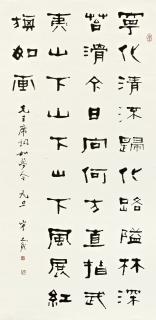 寧化清流歸化路隘林深
苔滑今日向何方直指武
夷山下山下山下風展紅
旗如畫
毛主席詞如夢令 元旦